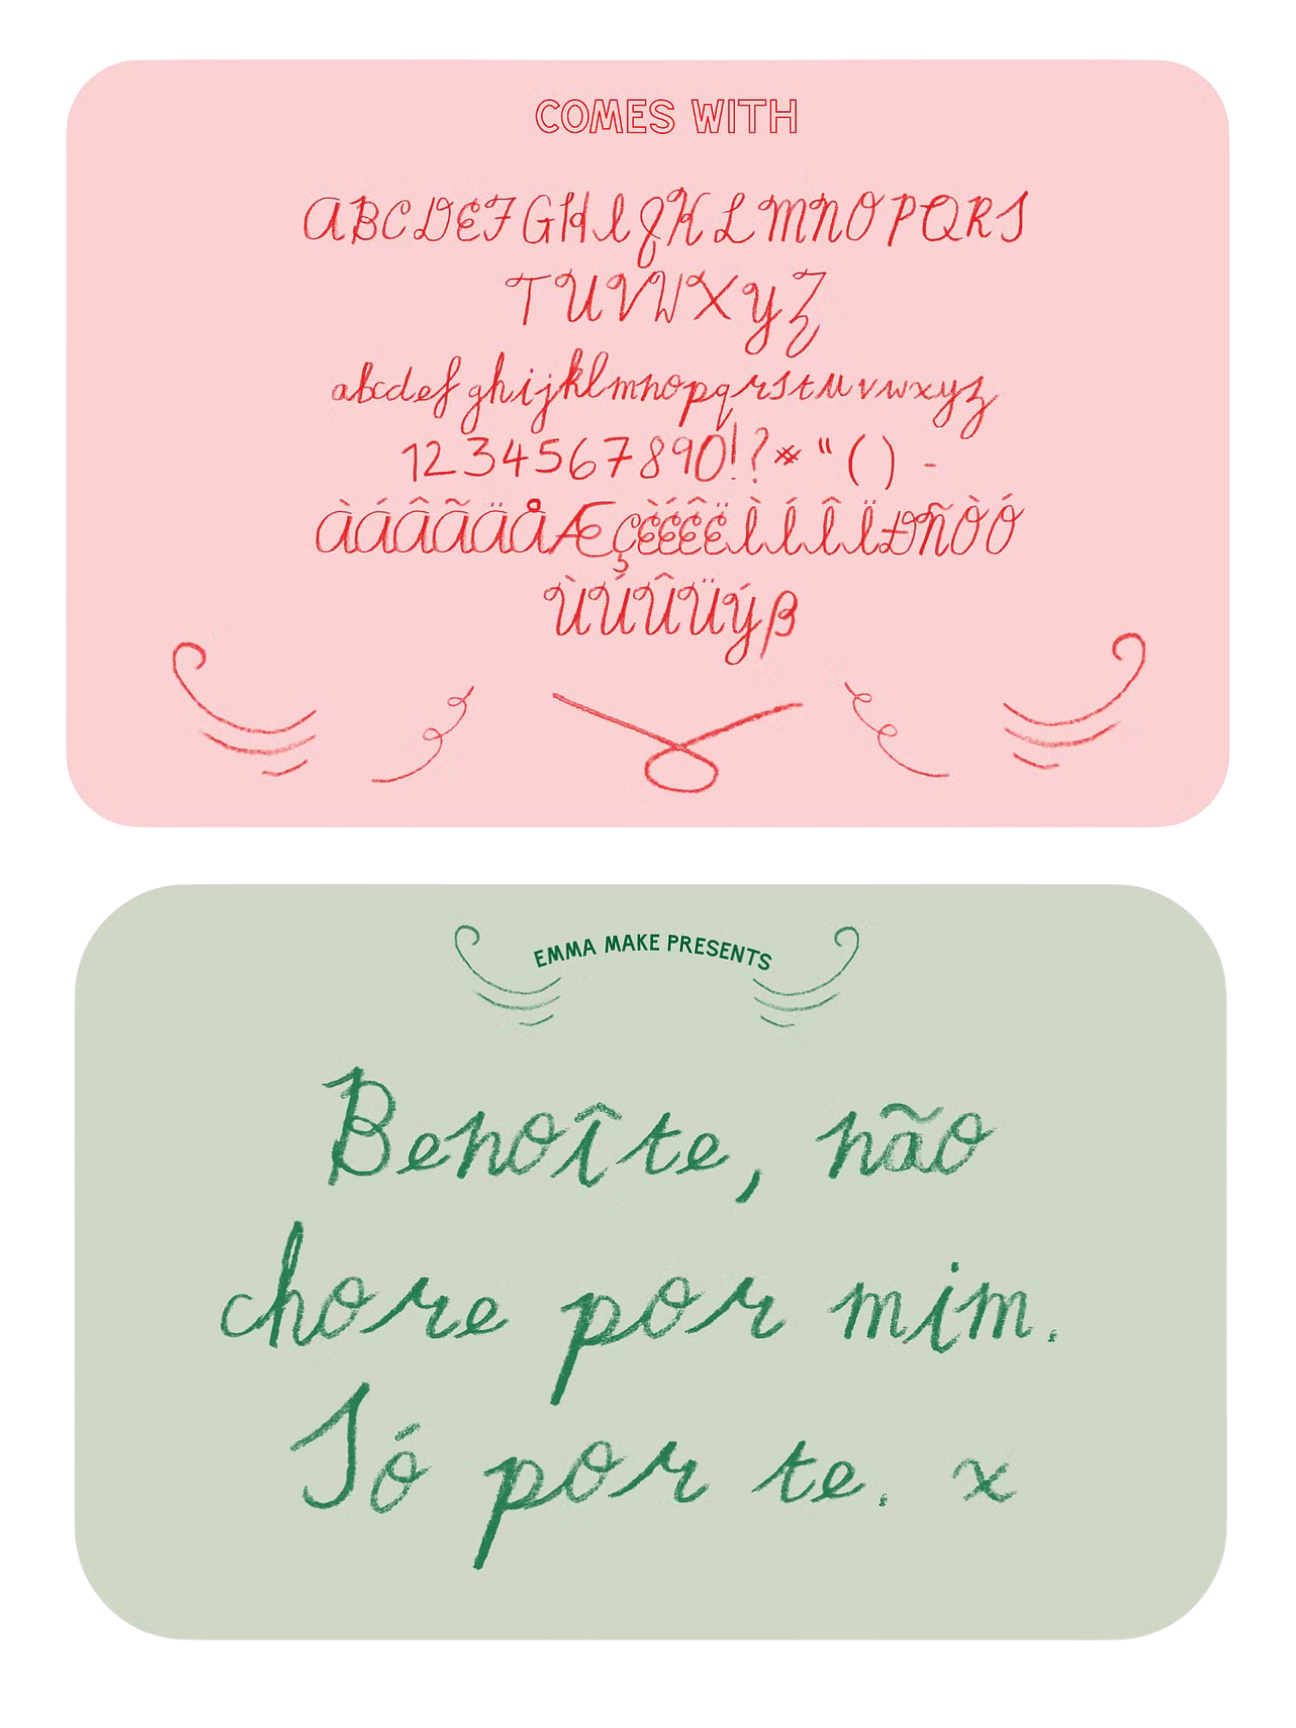 COMES WITH
ABCDEFGHIJKLMNOPQRS
TUVWXYZ
abcdefghijklmnopqrstuvwxyz
1234567890!?*"() -
ÀÁÂÃÄÅÆÇÈÉÊËÌÍÎÏÐÑÒÓ
ÙÚÛÜÝß
EMMA MAKE PRESENTS
Benoîte, não
chore por mim.
Só por te. x